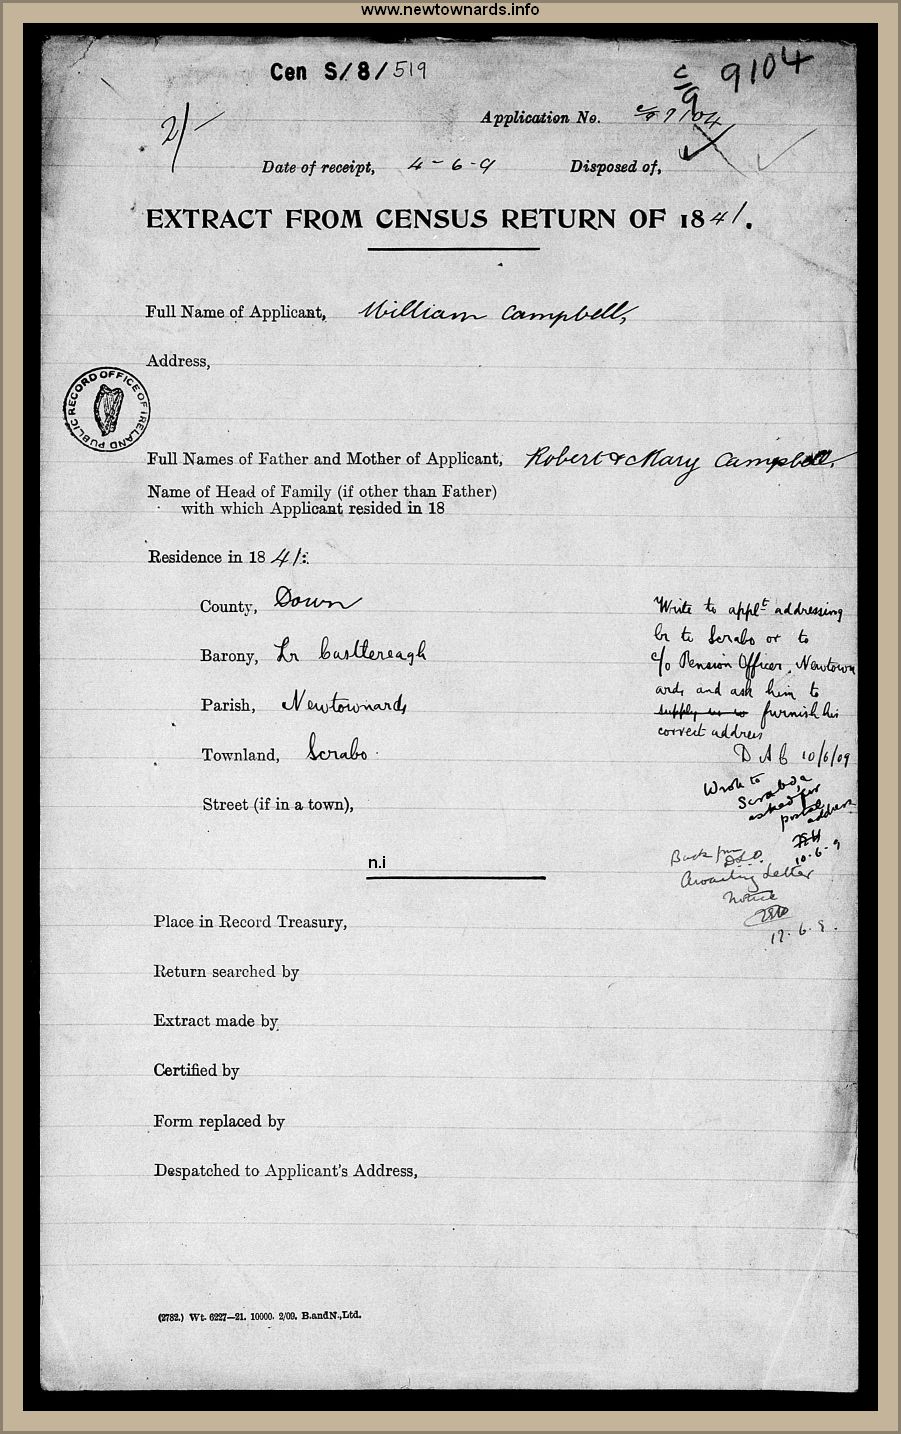 www.newtownards.info
Cen S/8/519
c/9 9104
2/-
Application No. c/9 9104
Date of receipt, 4-6-9 Disposed of,
EXTRACT FROM CENSUS RETURN OF 1841.
Full Name of Applicant, William Campbell,
Address,
PUBLIC RECORD OFFICE OF IRELAND
Full Names of Father and Mother of Applicant, Robert & Mary Campbell,
Name of Head of Family (if other than Father)
with which Applicant resided in 18
Residence in 1841:
County, Down
Barony, Lr Castlereagh
Parish, Newtownards
Townland, Scrabo
Street (if in a town),
Write to applt addressing
lr to Scrabo or to
c/o Pension Officer, Newtown
ards and ask him to
supply us w furnish his
correct address
D A C 10/6/09
Wrote to
Scrabo &
asked for
postal
address
10.6.9
Back from
D.L.O.
Awaiting Letter
notice
17.6.9.
n.i
Place in Record Treasury,
Return searched by
Extract made by
Certified by
Form replaced by
Despatched to Applicant's Address,
(2782.) Wt. 6227—21. 10000. 2/09. B.andN.,Ltd.